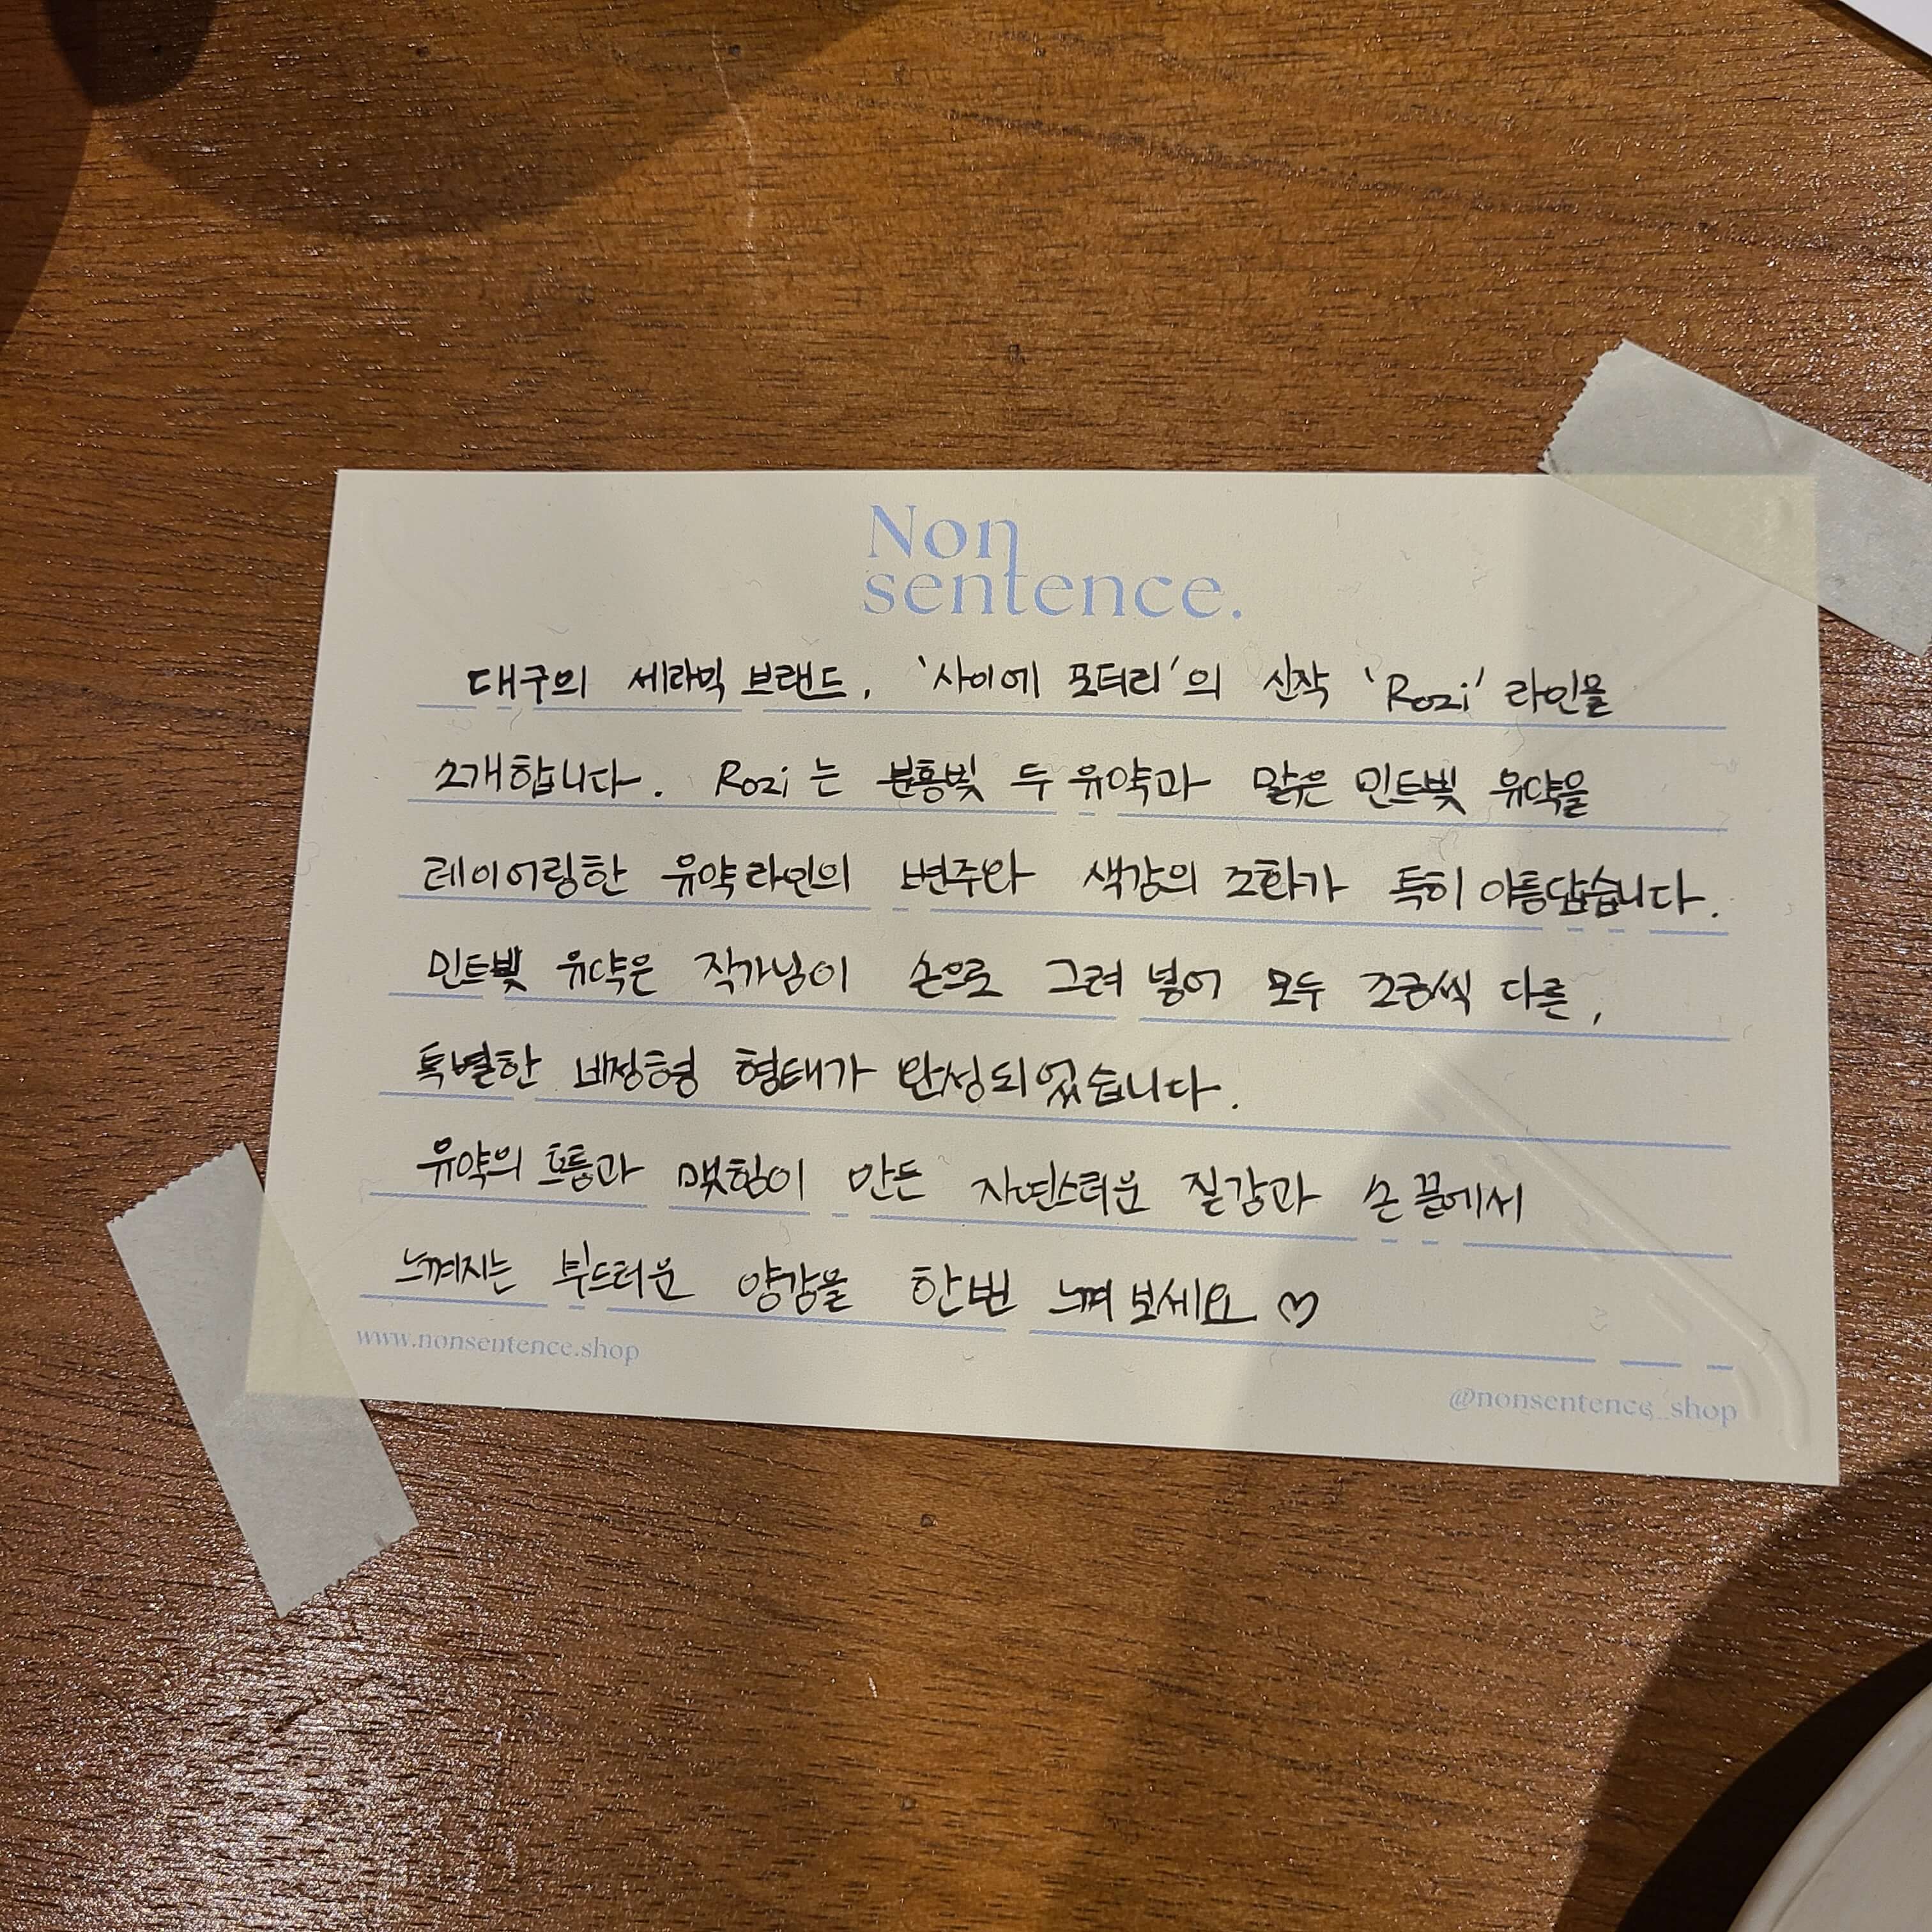 Non
sentence.
대구의 세라믹 브랜드, '사이에 포터리'의 신작 'Rozi' 라인을
소개합니다. Rozi는 분홍빛 두 유약과 맑은 민트빛 유약을
레이어링한 유약라인의 변주와 색감의 조화가 특히 아름답습니다.
민트빛 유약은 작가님이 손으로 그려 넣어 모두 조금씩 다른,
특별한 비정형 형태가 완성되었습니다.
유약의 흐름과 맺힘이 만든 자연스러운 질감과 손 끝에서
느껴지는 부드러운 양감을 한번 느껴 보세요 ♡
www.nonsentence.shop
@nonsentence_shop